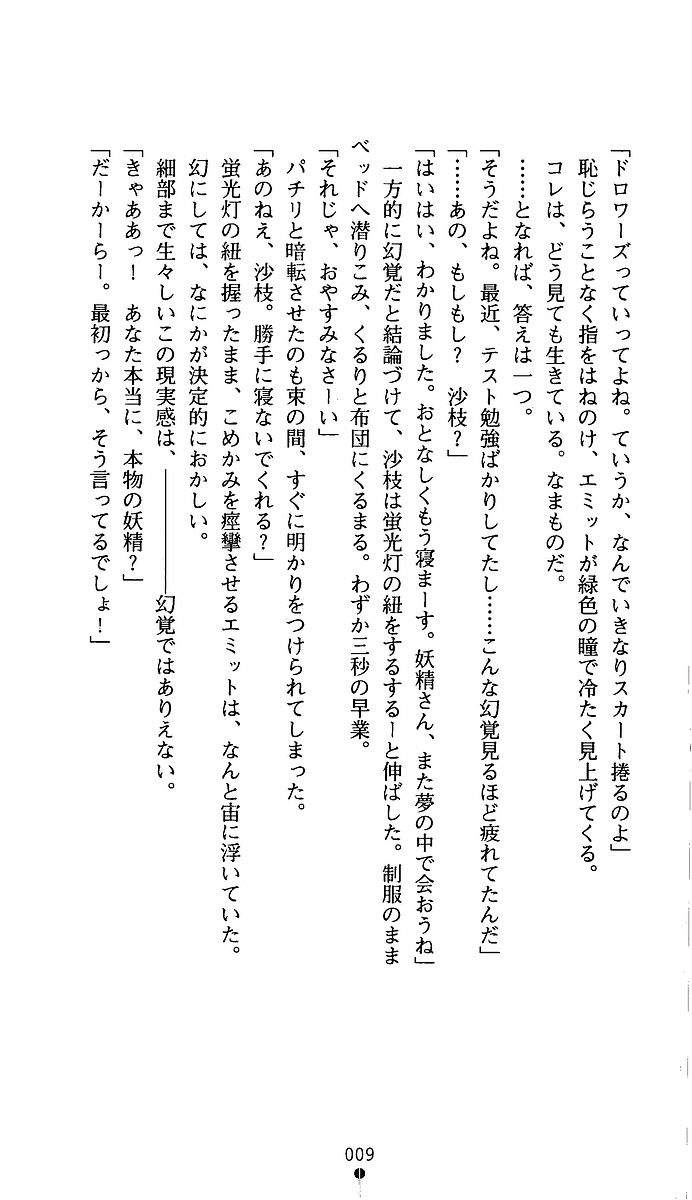 「ドロワーズっていってよね。ていうか、なんでいきなりスカート捲るのよ」
恥じらうことなく指をはねのけ、エミットが緑色の瞳で冷たく見上げてくる。
コレは、どう見ても生きている。なまものだ。
……となれば、答えは一つ。
「そうだよね。最近、テスト勉強ばかりしてたし……こんな幻覚見るほど疲れてたんだ」
「……あの、もしもし？　沙枝？」
「はいはい、わかりました。おとなしくもう寝まーす。妖精さん、また夢の中で会おうね」
一方的に幻覚だと結論づけて、沙枝は蛍光灯の紐をするするーと伸ばした。制服のまま
ベッドへ潜りこみ、くるりと布団にくるまる。わずか三秒の早業。
「それじゃ、おやすみなさーい」
パチリと暗転させたのも束の間、すぐに明かりをつけられてしまった。
「あのねえ、沙枝。勝手に寝ないでくれる？」
蛍光灯の紐を握ったまま、こめかみを痙攣させるエミットは、なんと宙に浮いていた。
幻にしては、なにかが決定的におかしい。
細部まで生々しいこの現実感は、――――幻覚ではありえない。
「きゃああっ！　あなた本当に、本物の妖精？」
「だーかーらー。最初っから、そう言ってるでしょ！」
009